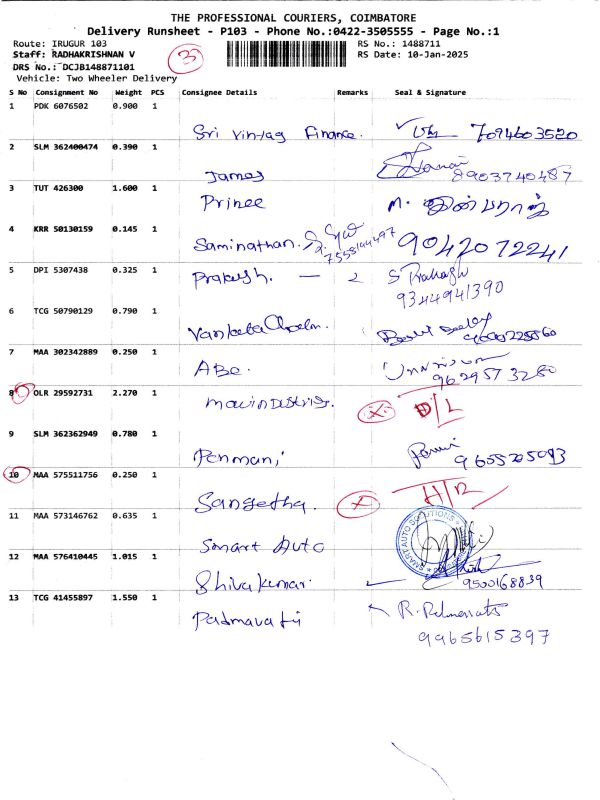 THE PROFESSIONAL COURIERS, COIMBATORE
Delivery Runsheet - P103 - Phone No.:0422-3505555 - Page No.:1
Route: IRUGUR 103
RS No.: 1488711
Staff: RADHAKRISHNAN V
RS Date: 10-Jan-2025
DRS No.: DCJB148871101
Vehicle: Two Wheeler Delivery
S No Consignment No Weight PCS Consignee Details Remarks Seal & Signature
1 PDK 6076502 0.900 1
Sri Vinyag Finance. 7094603520
2 SLM 362400474 0.390 1
James 8903740487
3 TUT 426300 1.600 1
Prince M. இன்பராஜ்
4 KRR 50130159 0.145 1
Saminathan. 7558144497 9042072241
5 DPI 5307438 0.325 1
Prakash. — 2 S Prakash
9344941390
6 TCG 50790129 0.790 1
7 MAA 302342889 0.250 1
ABC. 9629573280
8 OLR 29592731 2.270 1
D/L
9 SLM 362362949 0.780 1
Penmani 9655205093
10 MAA 575511756 0.250 1
Sangeetha. H/R
11 MAA 573146762 0.635 1
Smart Auto
SMART AUTO SOLUTIONS
12 MAA 576410445 1.015 1
Shivakumar. 9500168839
13 TCG 41455897 1.550 1
Padmavati
9965615397